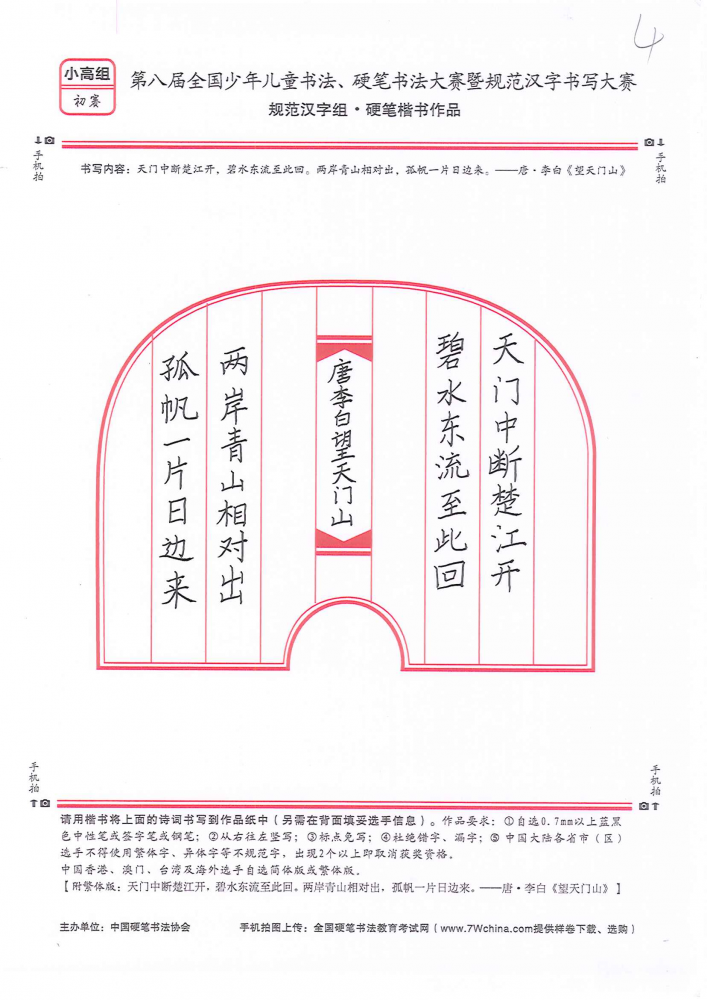 4
小高组
初赛
第八届全国少年儿童书法、硬笔书法大赛暨规范汉字书写大赛
规范汉字组·硬笔楷书作品
手机拍
手机拍
书写内容：天门中断楚江开，碧水东流至此回。两岸青山相对出，孤帆一片日边来。——唐·李白《望天门山》
天门中断楚江开
碧水东流至此回
唐李白望天门山
两岸青山相对出
孤帆一片日边来
手机拍
手机拍
请用楷书将上面的诗词书写到作品纸中（另需在背面填妥选手信息）。作品要求：①自选0.7mm以上蓝黑
色中性笔或签字笔或钢笔；②从右往左竖写；③标点免写；④杜绝错字、漏字；⑤中国大陆各省市（区）
选手不得使用繁体字、异体字等不规范字，出现2个以上即取消获奖资格。
中国香港、澳门、台湾及海外选手自选简体版或繁体版。
【附繁体版：天门中断楚江开，碧水东流至此回。两岸青山相对出，孤帆一片日边来。——唐·李白《望天门山》】
主办单位：中国硬笔书法协会
手机拍图上传：全国硬笔书法教育考试网（www.7Wchina.com提供样卷下载、选购）